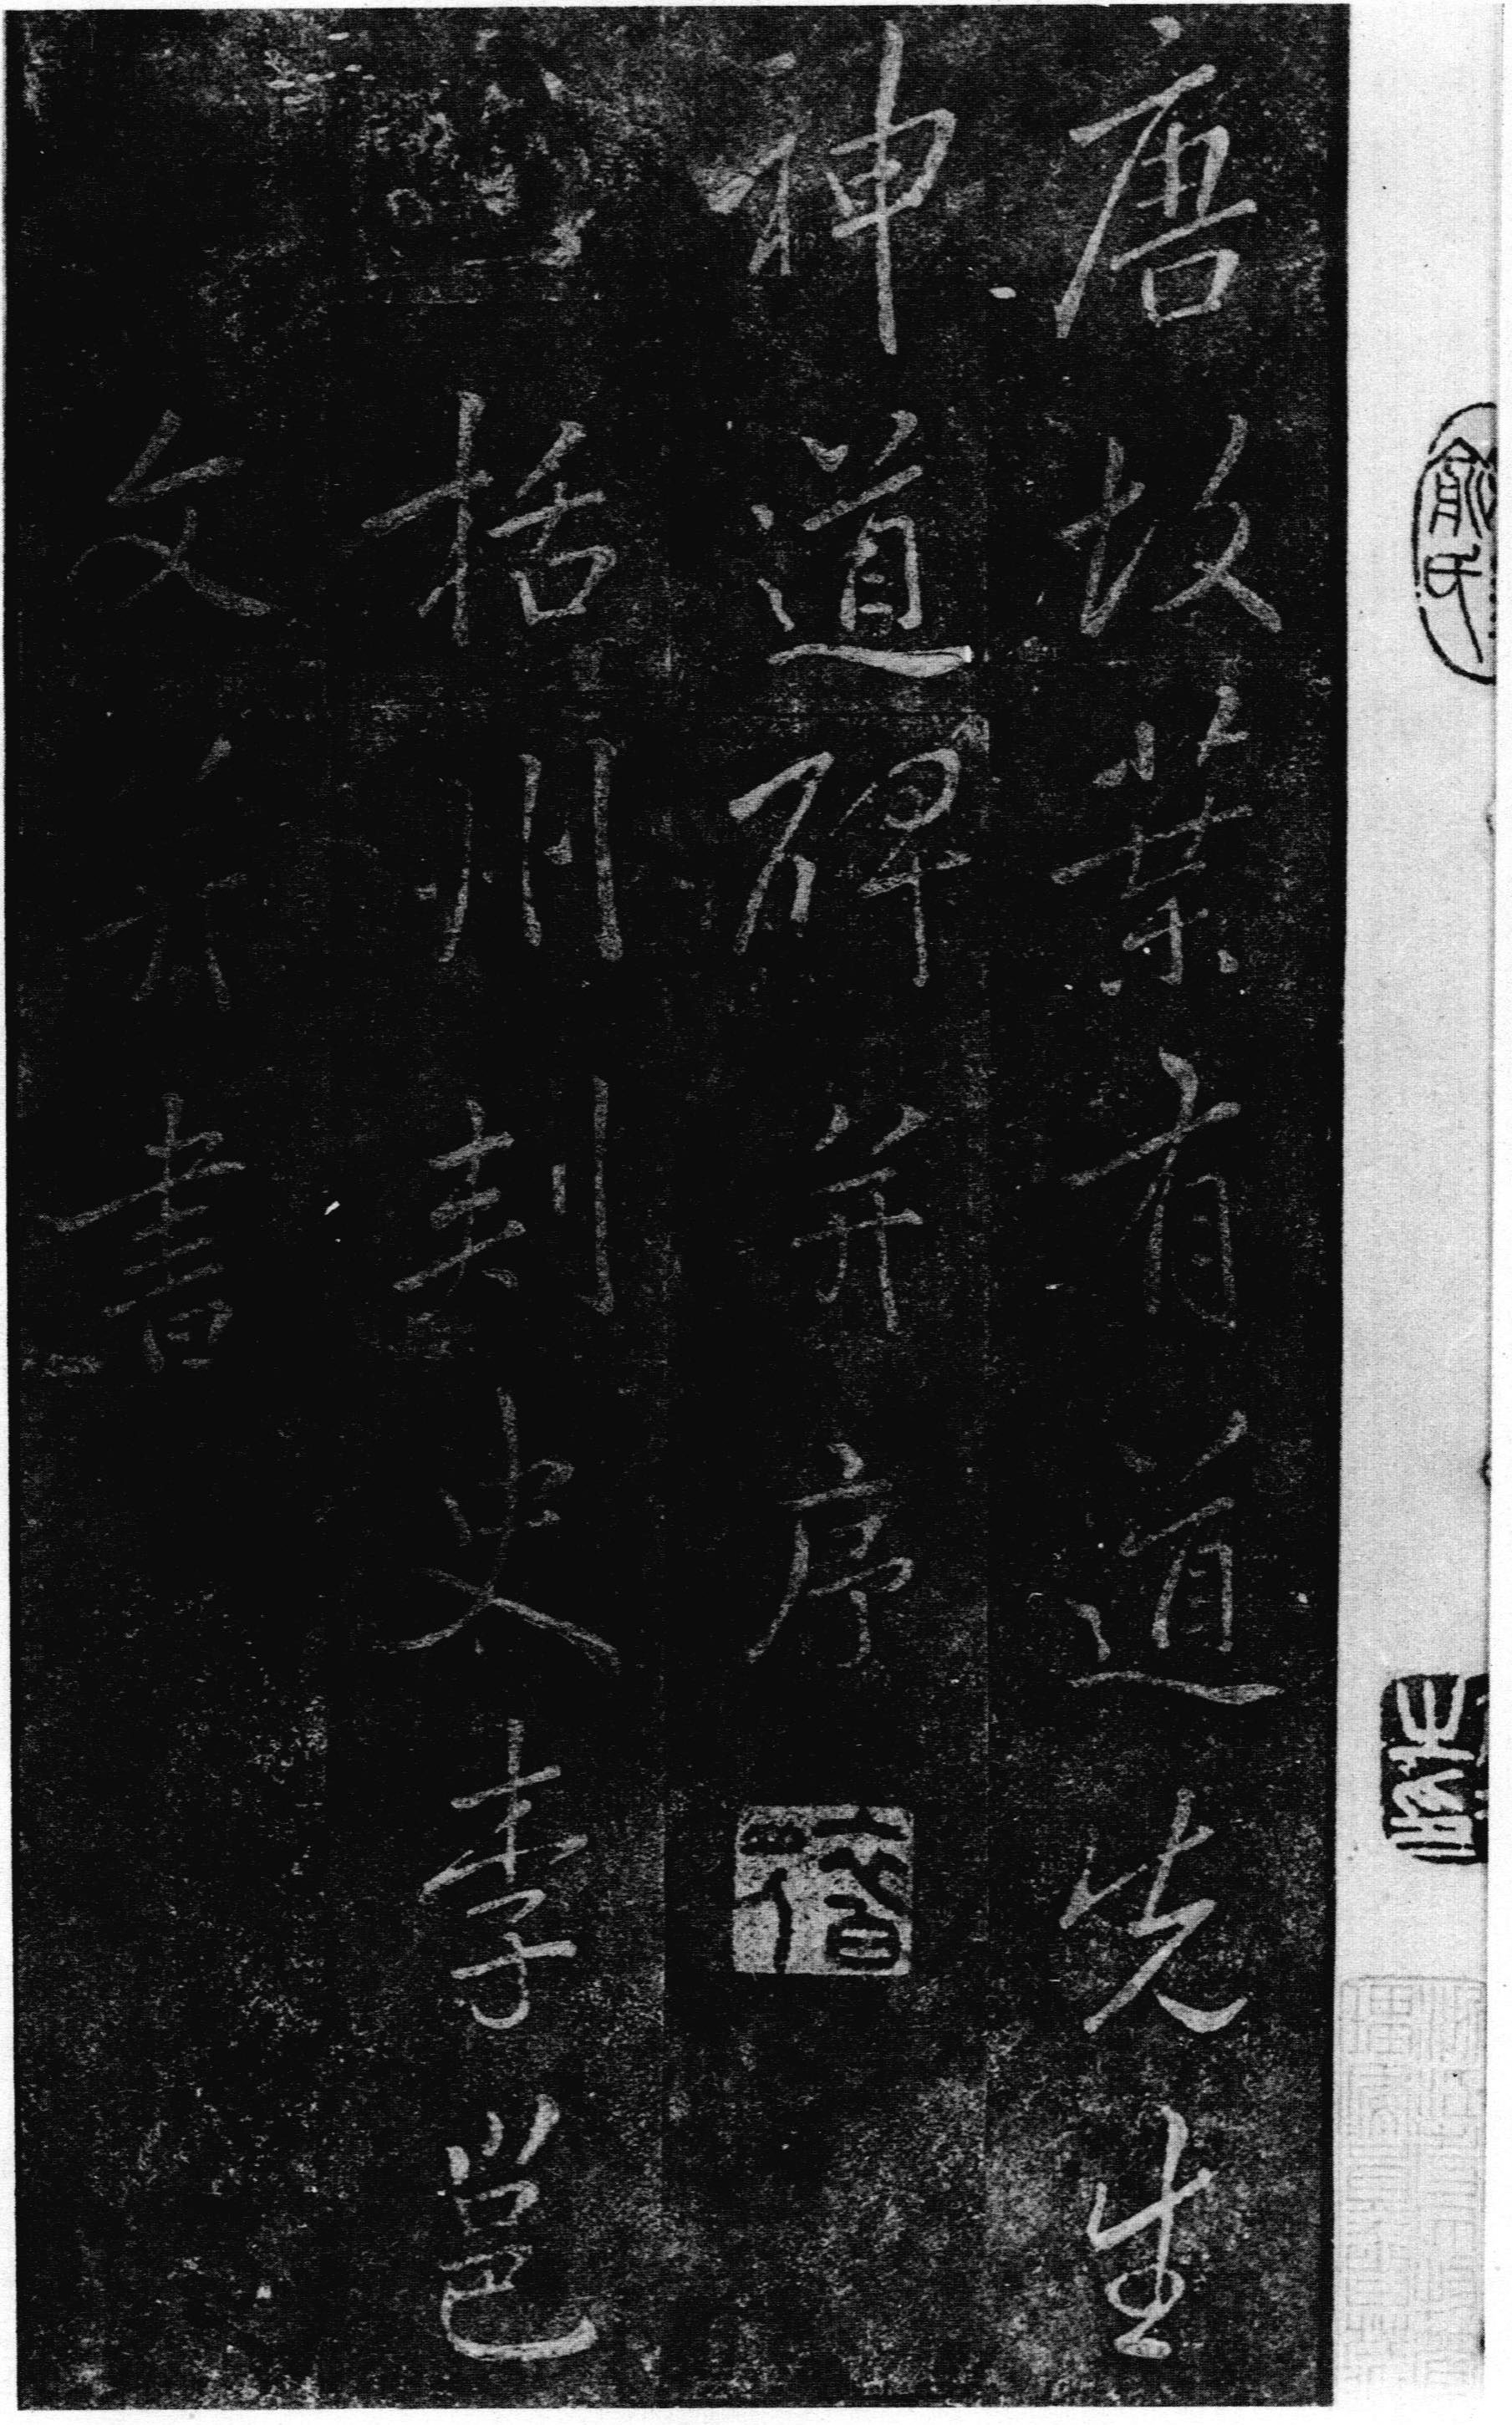 唐故葉有道先生
神道碑并序
括州刺史李邕
文并書